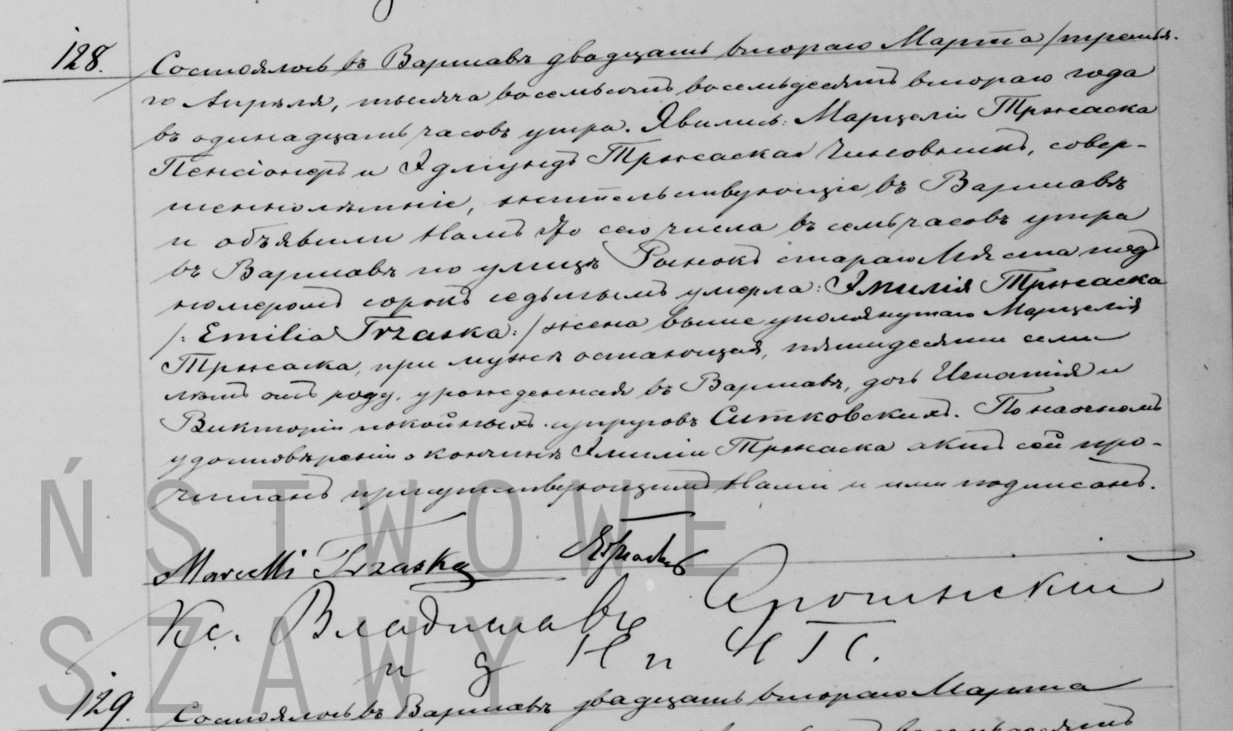 128.
Состоялось въ Варшавѣ двадцать втораго Марта /третья-
го Апрѣля, тысяча восемьсотъ восемьдесятъ втораго года
въ одинадцать часовъ утра. Явились: Марцелій Тржаска
Пенсіонеръ и Эдмундъ Тржаска Чиновникъ, совер-
шеннолѣтніе, жительствующіе въ Варшавѣ
и объявили Намъ что сего числа въ семь часовъ утра
въ Варшавѣ по улицѣ Рынокъ стараго Мѣста подъ
номеромъ сорокъ седьмымъ умерла: Эмилія Тржаска
/: Emilia Trzaska :/ жена выше упомянутаго Марцелія
Тржаска, при мужѣ остающая, пятидесяти семи
лѣтъ отъ роду, урожденная въ Варшавѣ, дочь Игнатія и
Викторіи покойныхъ супруговъ Ситковскихъ. По наочномъ
удостовѣреніи о кончинѣ Эмиліи Тржаска актъ сей про-
читанъ присутствующимъ Нами и ими подписанъ.
Marcelli Trzaska
Кс. Владиславъ
и д Н и Ч П.
129. Состоялось въ Варшавѣ двадцать втораго Марта
ŃSTWOWE
SZAWY